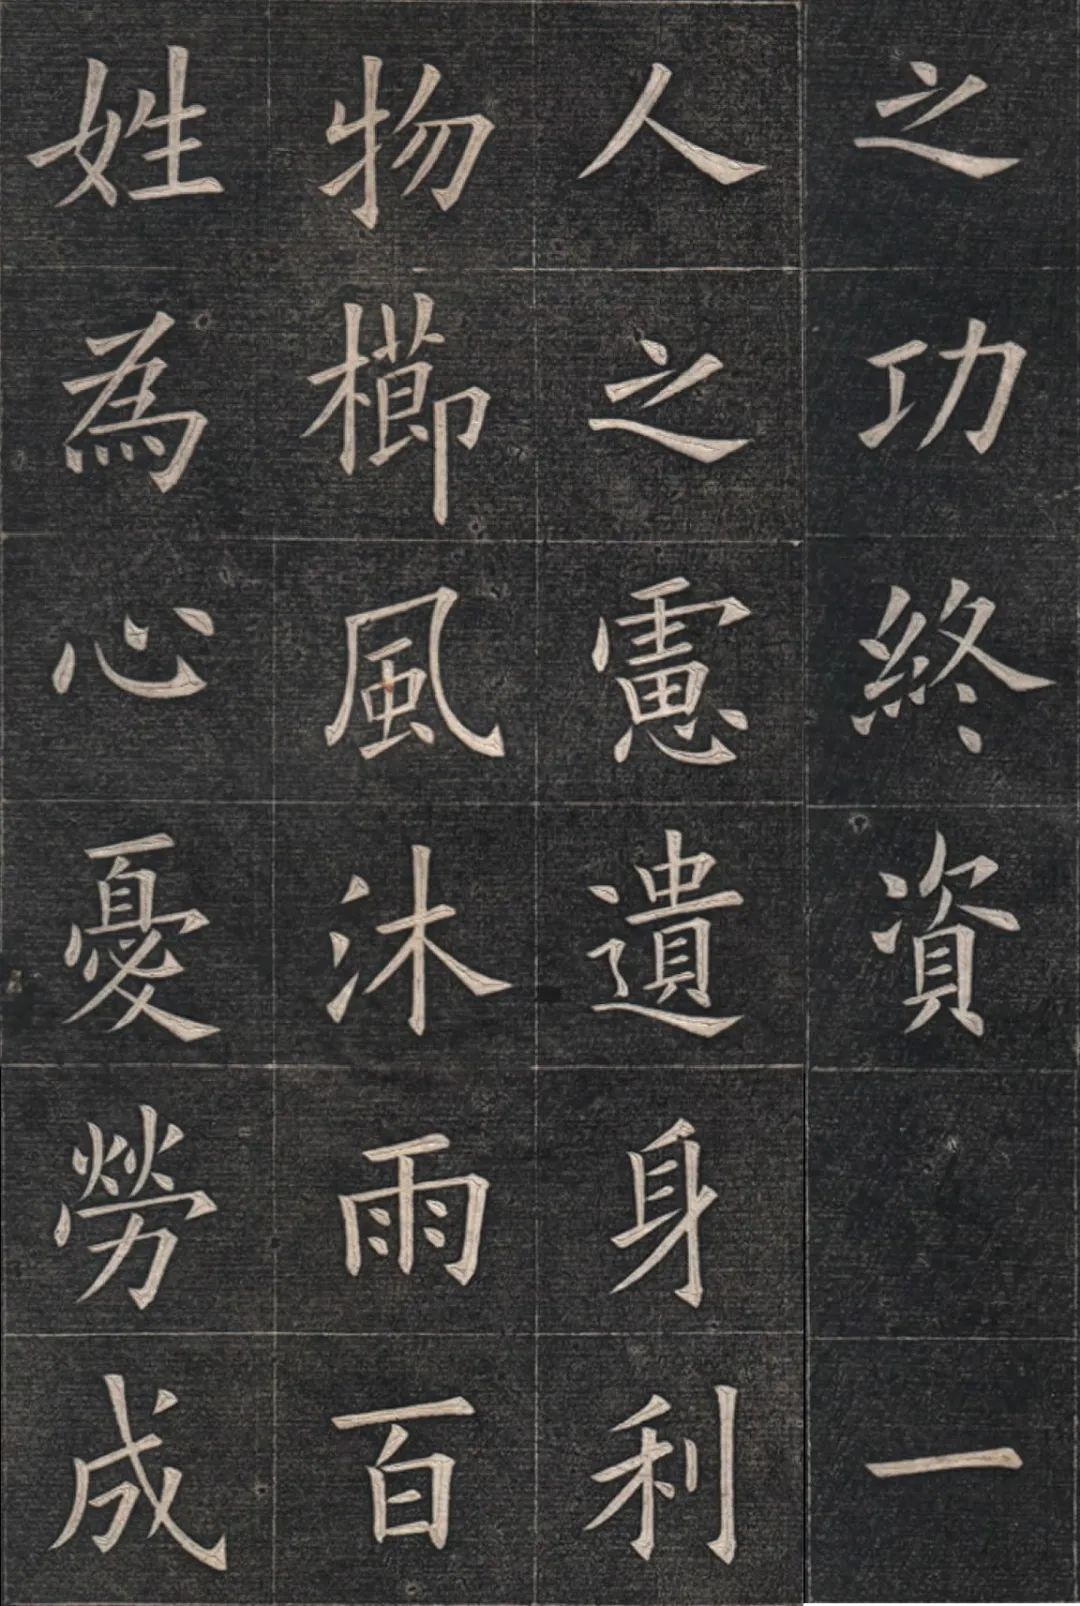 之功終資　一
人之慮遺身利
物櫛風沐雨百
姓為心憂勞成